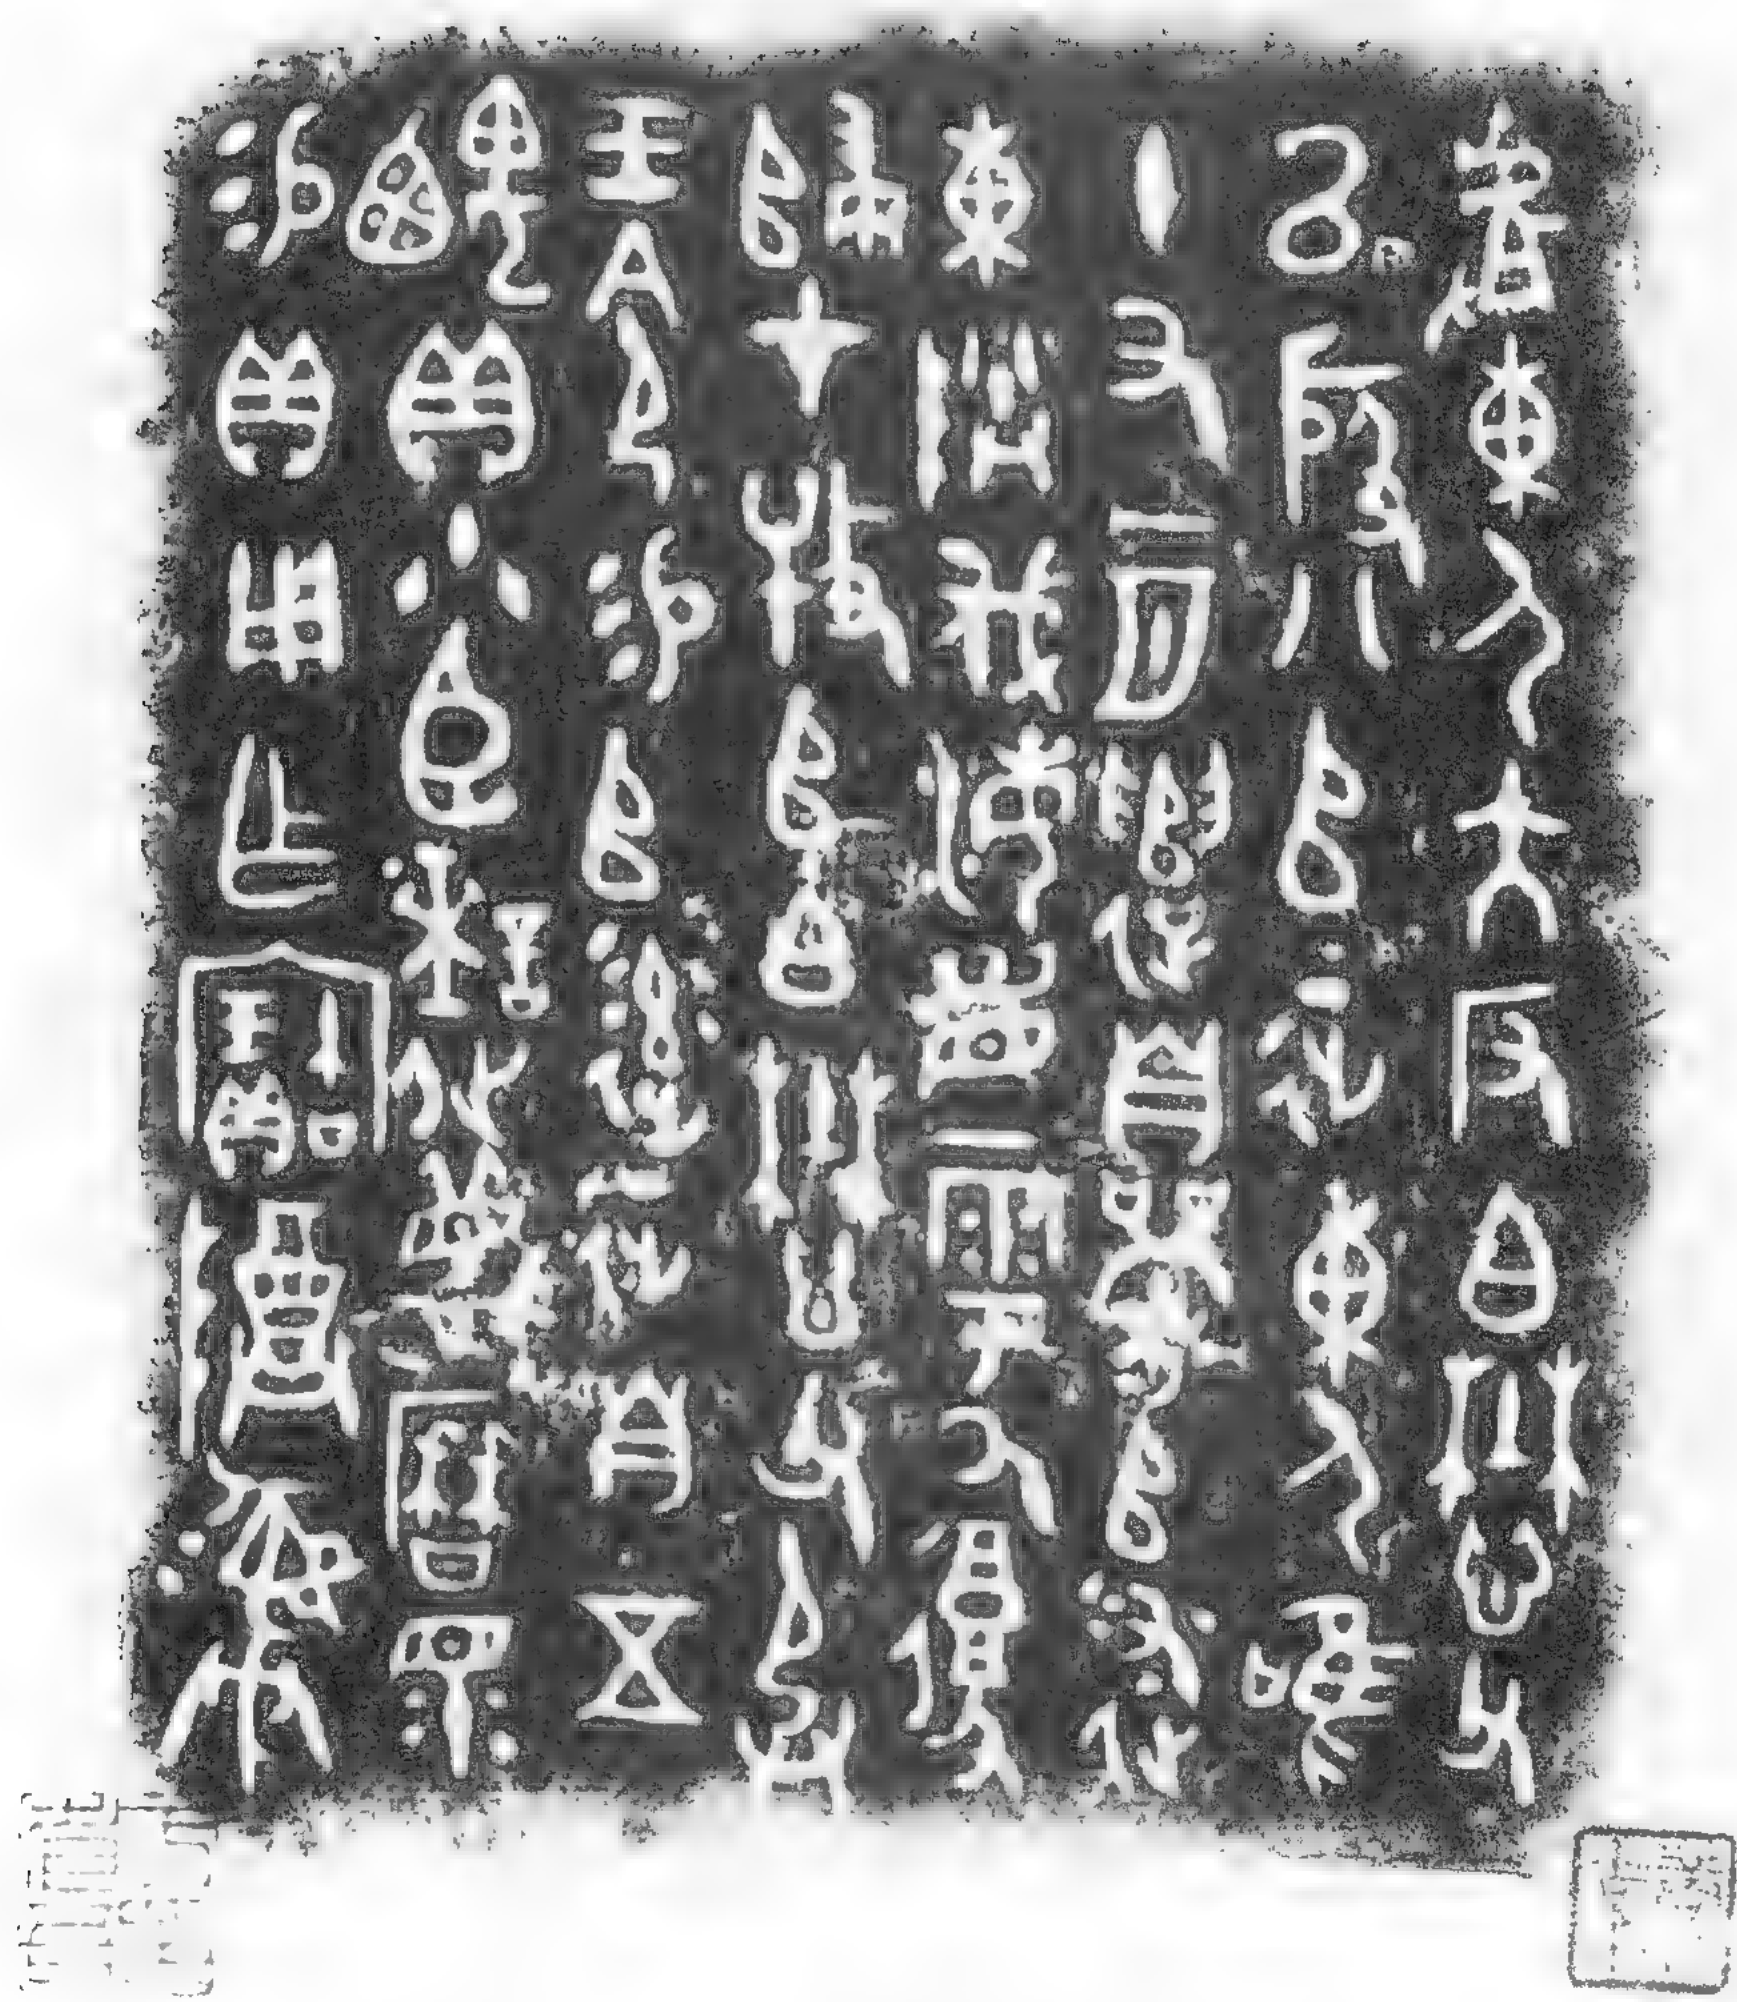 𠭯東尸大反白懋父
以殷八𠂤征東尸唯
十又一月遣自𠂤
述東伐海眉雩厥復
歸才牧𠂤白懋父承
王令易𠂤達征自五
齵貝小臣謎蔑曆眔
易貝用乍寶尊彝